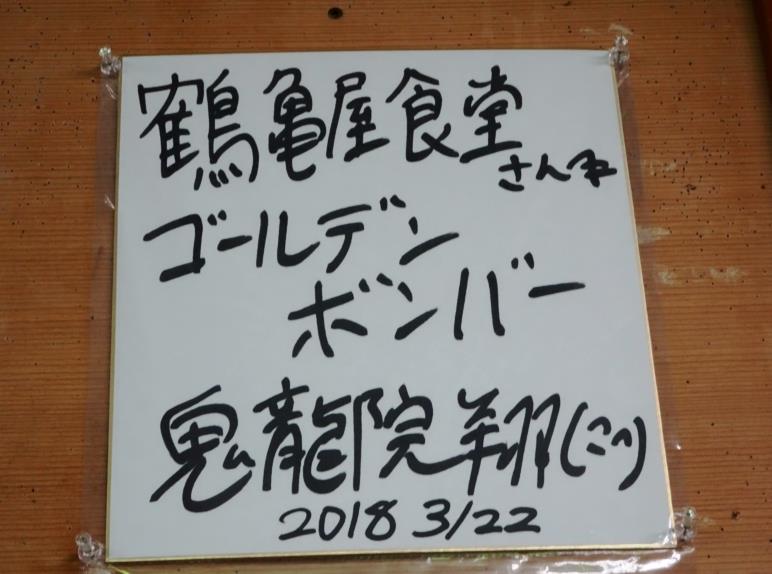 鶴亀屋食堂
さん江
ゴールデン
ボンバー
鬼龍院翔
2018 3/22